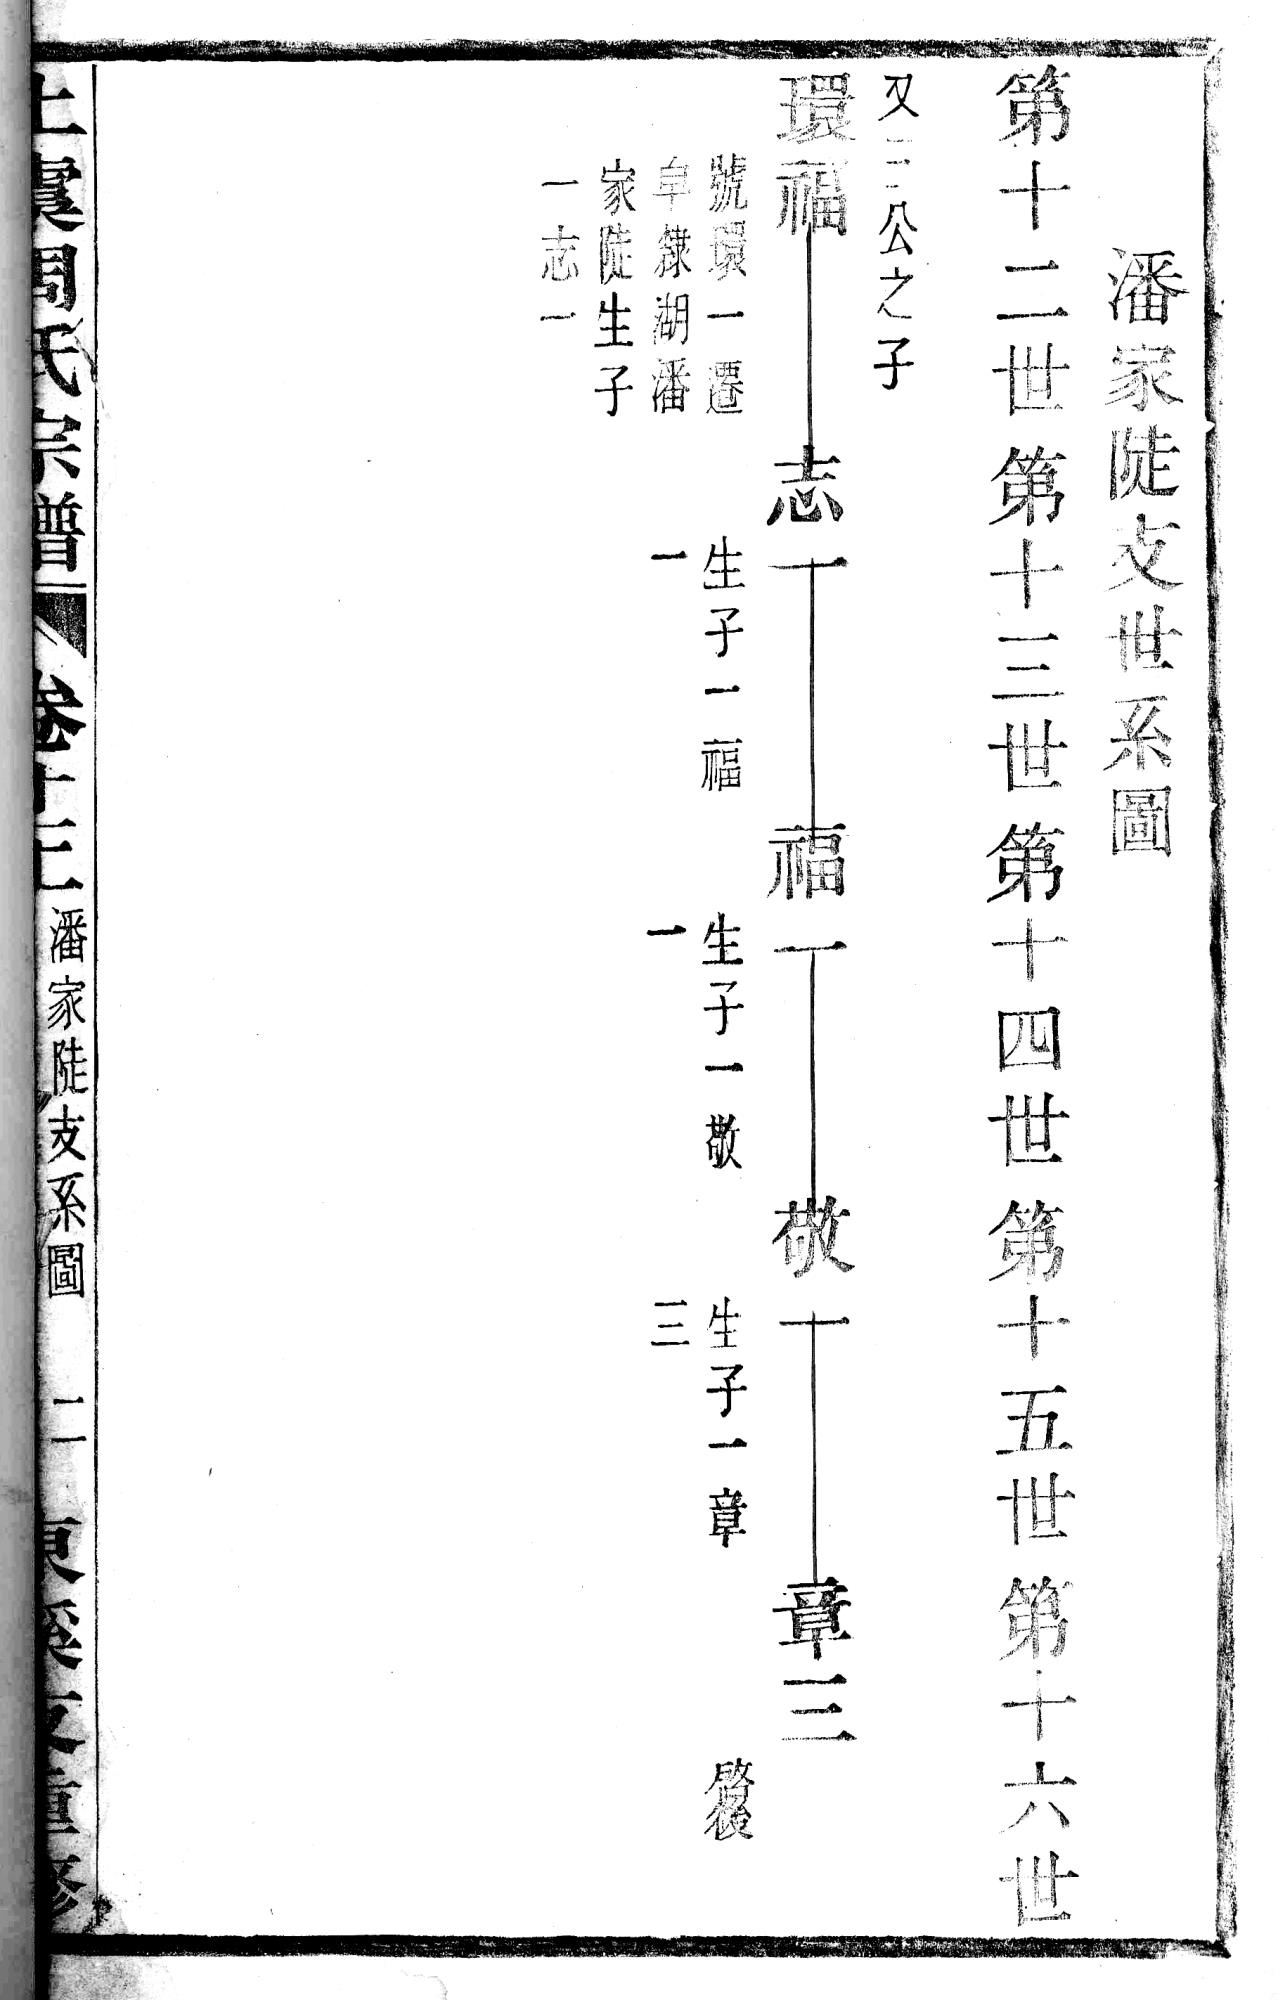 潘家陡支世系圖
第十二世第十三世第十四世第十五世第十六世
又三公之子
環福 志一 福一 敬一 章三
號環一遷
皁𨽻湖潘
家陡生子
一志一
生子一福
一
生子一敬
一
生子一章
三
啓後
上虞周氏宗譜 卷十三 潘家陡支系圖 二 東溪支重修